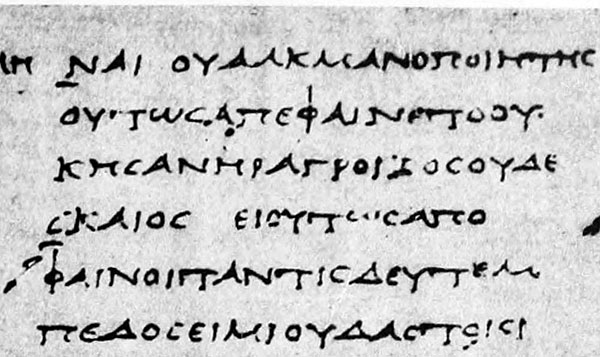 ΙΗ ΝΑΙ ΟΥΑΛΚΜΑΝΟΠΟΙΗΤΗϹ
ΟΥΤΩϹΑΠΕΦΑΙΝΕΤΟΟΥ
ΚΗϹΑΝΗΡΑΓΡΟΙΚΟϹΟΥΔΕ
ϹΚΑΙΟϹ ΕΙΟΥΤΩϹΑΠΟ
ΦΑΙΝΟΙΤΑΝΤΙϹΔΕΥΤΕΜ
ΠΕΔΟϹΕΙΜΙΟΥΔΑϹΤΟΙϹΙ